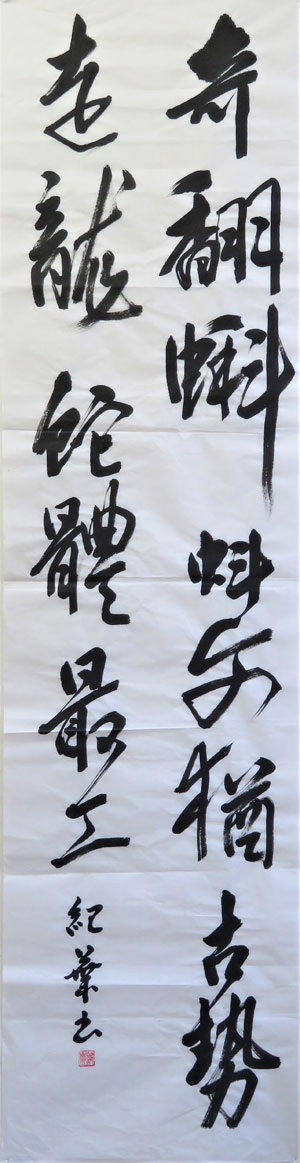 奇翻蝌蚪文猶古勢
走龍蛇體最工
紀葉书